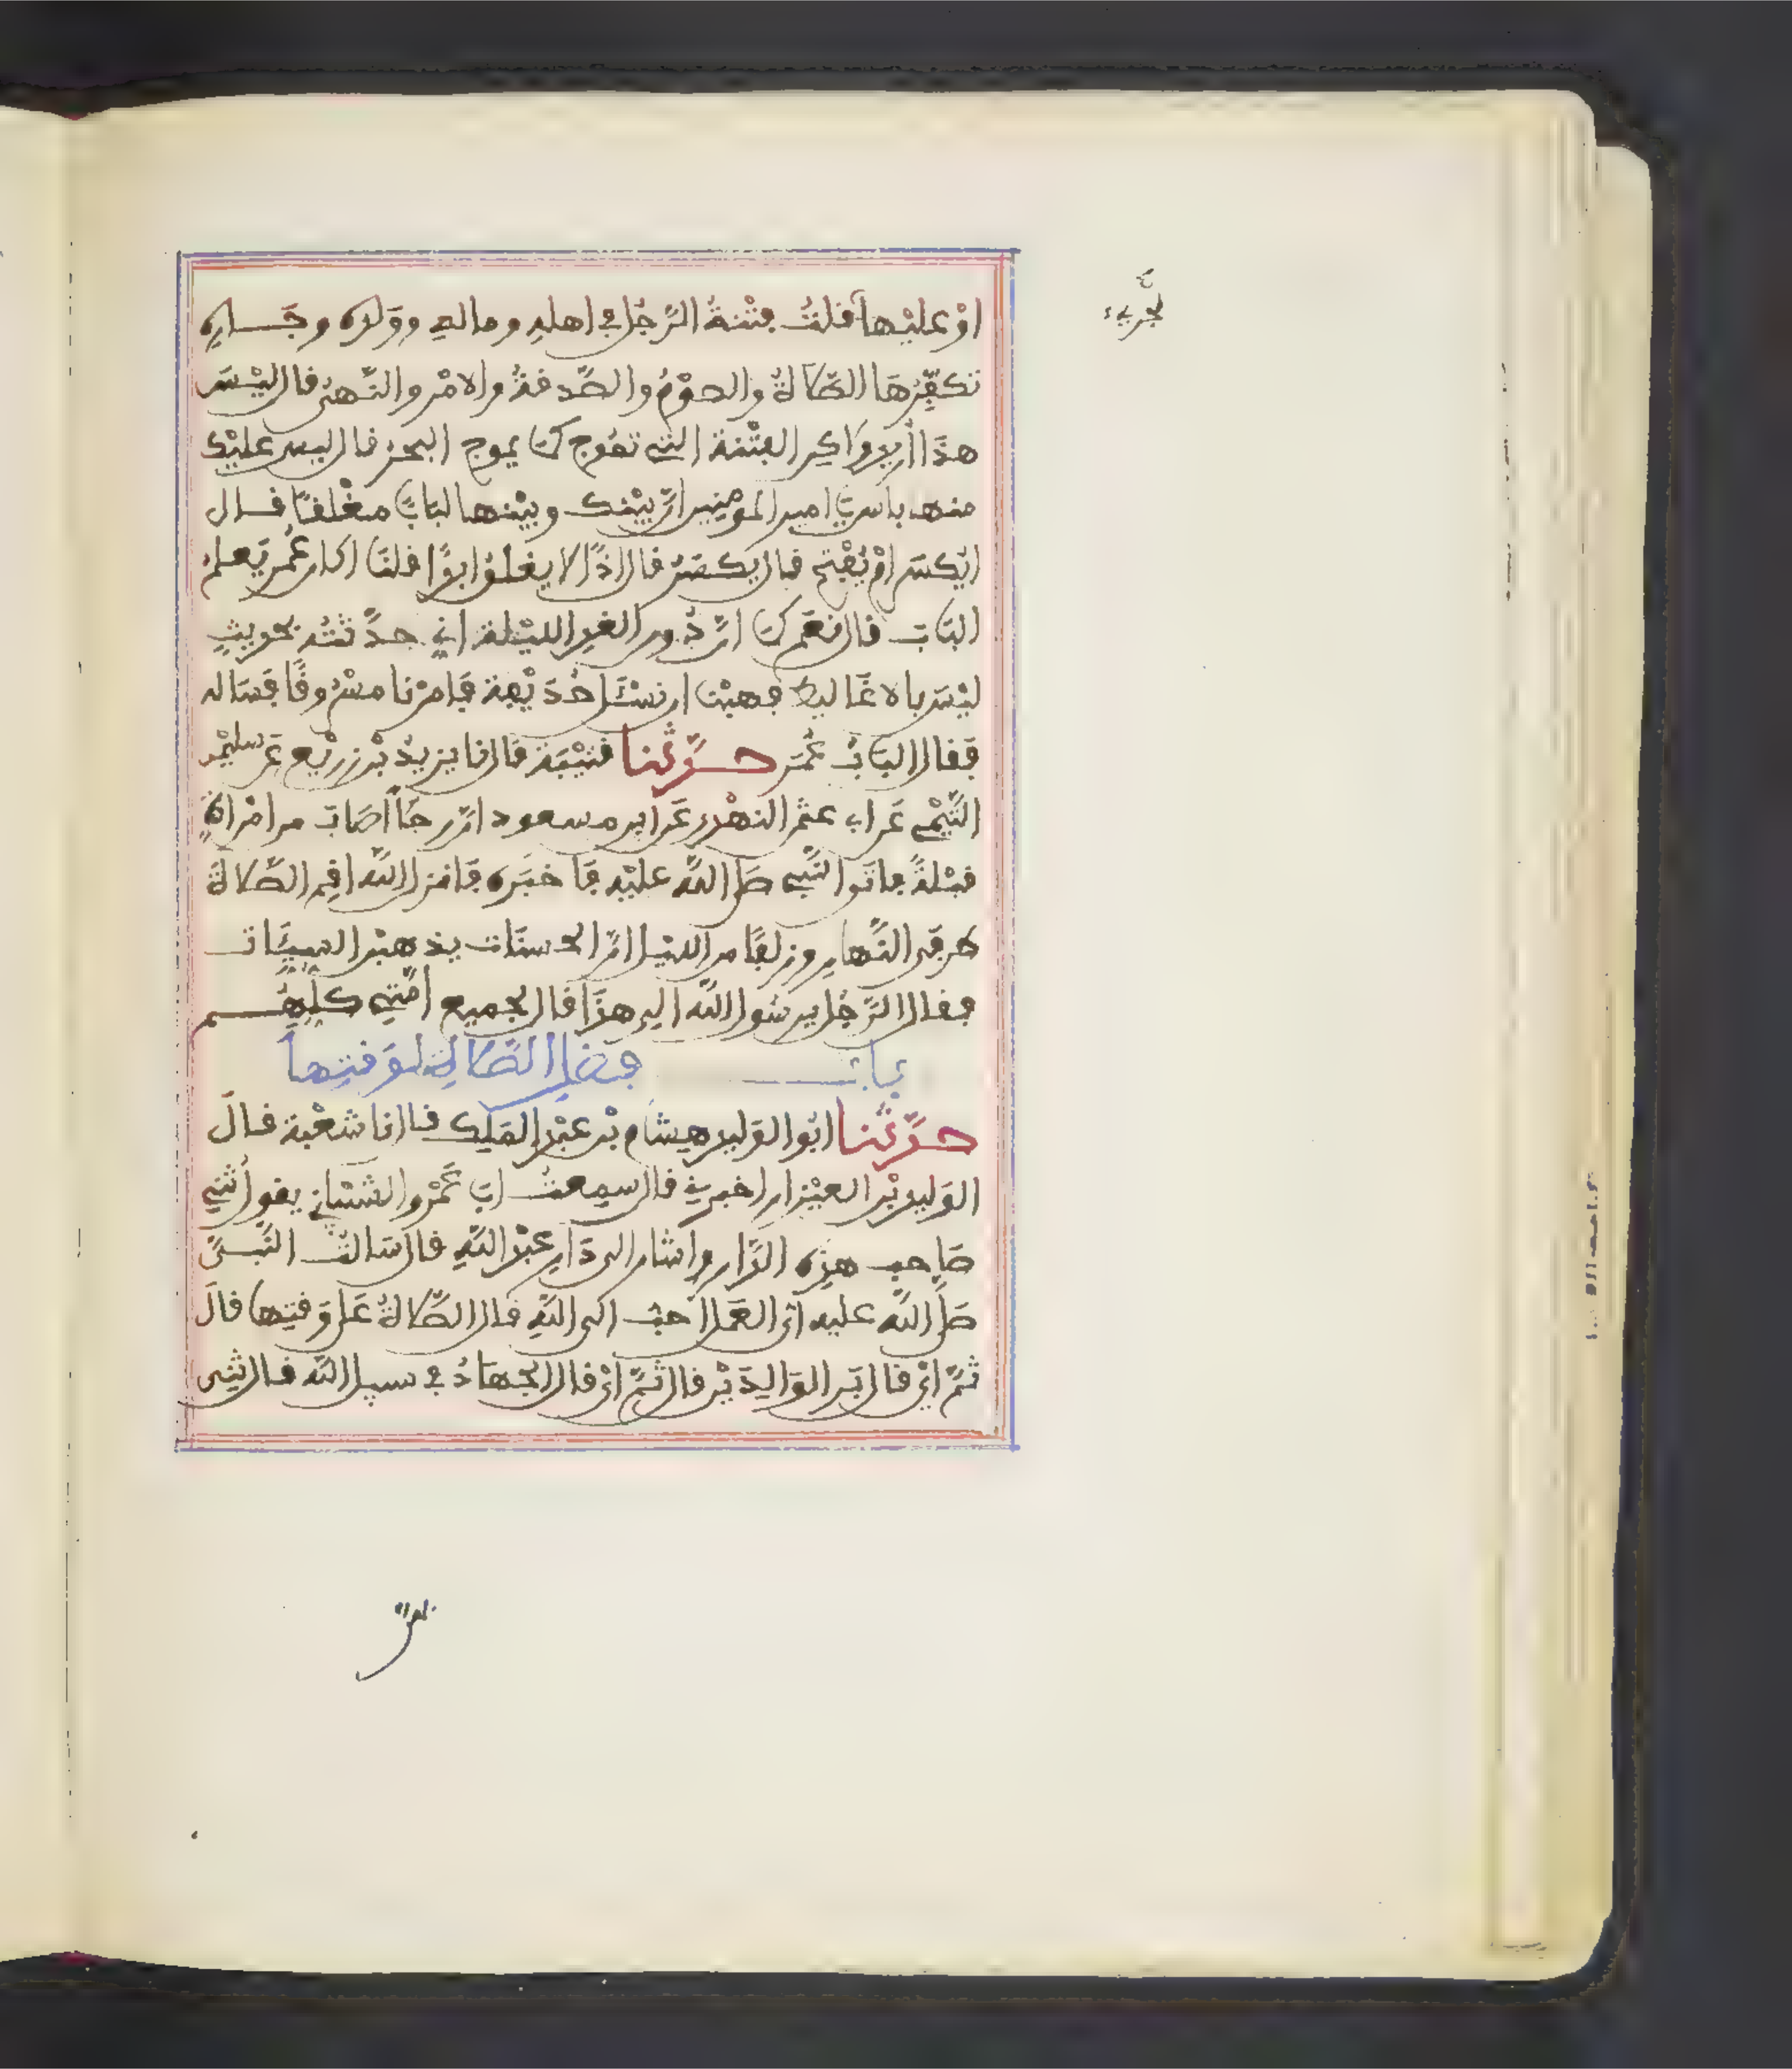 اوْ عليْها قلتُ فتْنةُ الرّجُل في اهلِه ومالِه ووَلَدِه وجَارِه
تكفّرُهَا الصّلاةُ والصوْمُ والصّدقةُ والامْر والنّهىُ قال ليْسَ
هذَا أريد ولَاكِن الفتْنة التي تمُوج كمَا يموج البحْر قال ليس عليْك
منها باس يا امير المومنين انّ بيْنك وبيْنها لبَابًا مغْلقًا قال
ايكسَر اوْ يُفْتح قال يكسَرُ قال اذًا لا يغلقُ ابدًا قلنَا اكان عُمَر يَعلم
البَابَ قال نعَم كمَا انّ دُون الغدِ الليْلة اني حدّثتُه بحديثٍ
ليْسَ بالاغَاليط فهبْنا ان نسْئَل حُذَيْفة فَامرْنا مسْرُوقًا فَسَاله
فَقال البَابُ عُمَر حدّثنا قتيْبَة قال نا يزيدُ بْن زريْع عَن سليْمن
التّيْمي عَن ابي عثمن النهْدي عَن ابن مسعود انّ رجُلًا اصَابَ من امْراةٍ
قبْلةً فاتى النّبي صَلى اللّه عليْه فَاخبَره فَانزل اللّه اقم الصّلاةَ
طرفي النّهارِ وزلفًا من الليْل انّ الحسنَات يذهبْن السيّئات
فقال الرّجُل يرسُول اللّه الِي هذَا قال لجميع امّتي كلّهُم
بابُ فضل الصّلاة لوَقتِها
حدّثنا ابُو الوَليد هِشام بْن عبْد المَلِك قال نا شعْبة قالَ
الوَليد بْن العيْزار اخبرني قال سمِعتُ ابَا عَمْرو الشّيْباني يقول ثني
صَاحب هذِه الدّار واشار الى دَار عبْد اللّه قال سَالتُ النّبيّ
صَلى اللّه عليه ايّ العَمل احبّ الى اللّه قال الصّلاةُ عَلى وَقتِها قالَ
ثمّ ايْ قال بَر الوَالِدَيْن قال ثمّ ايْ قال الجهَادُ في سبيل اللّه قال ثني